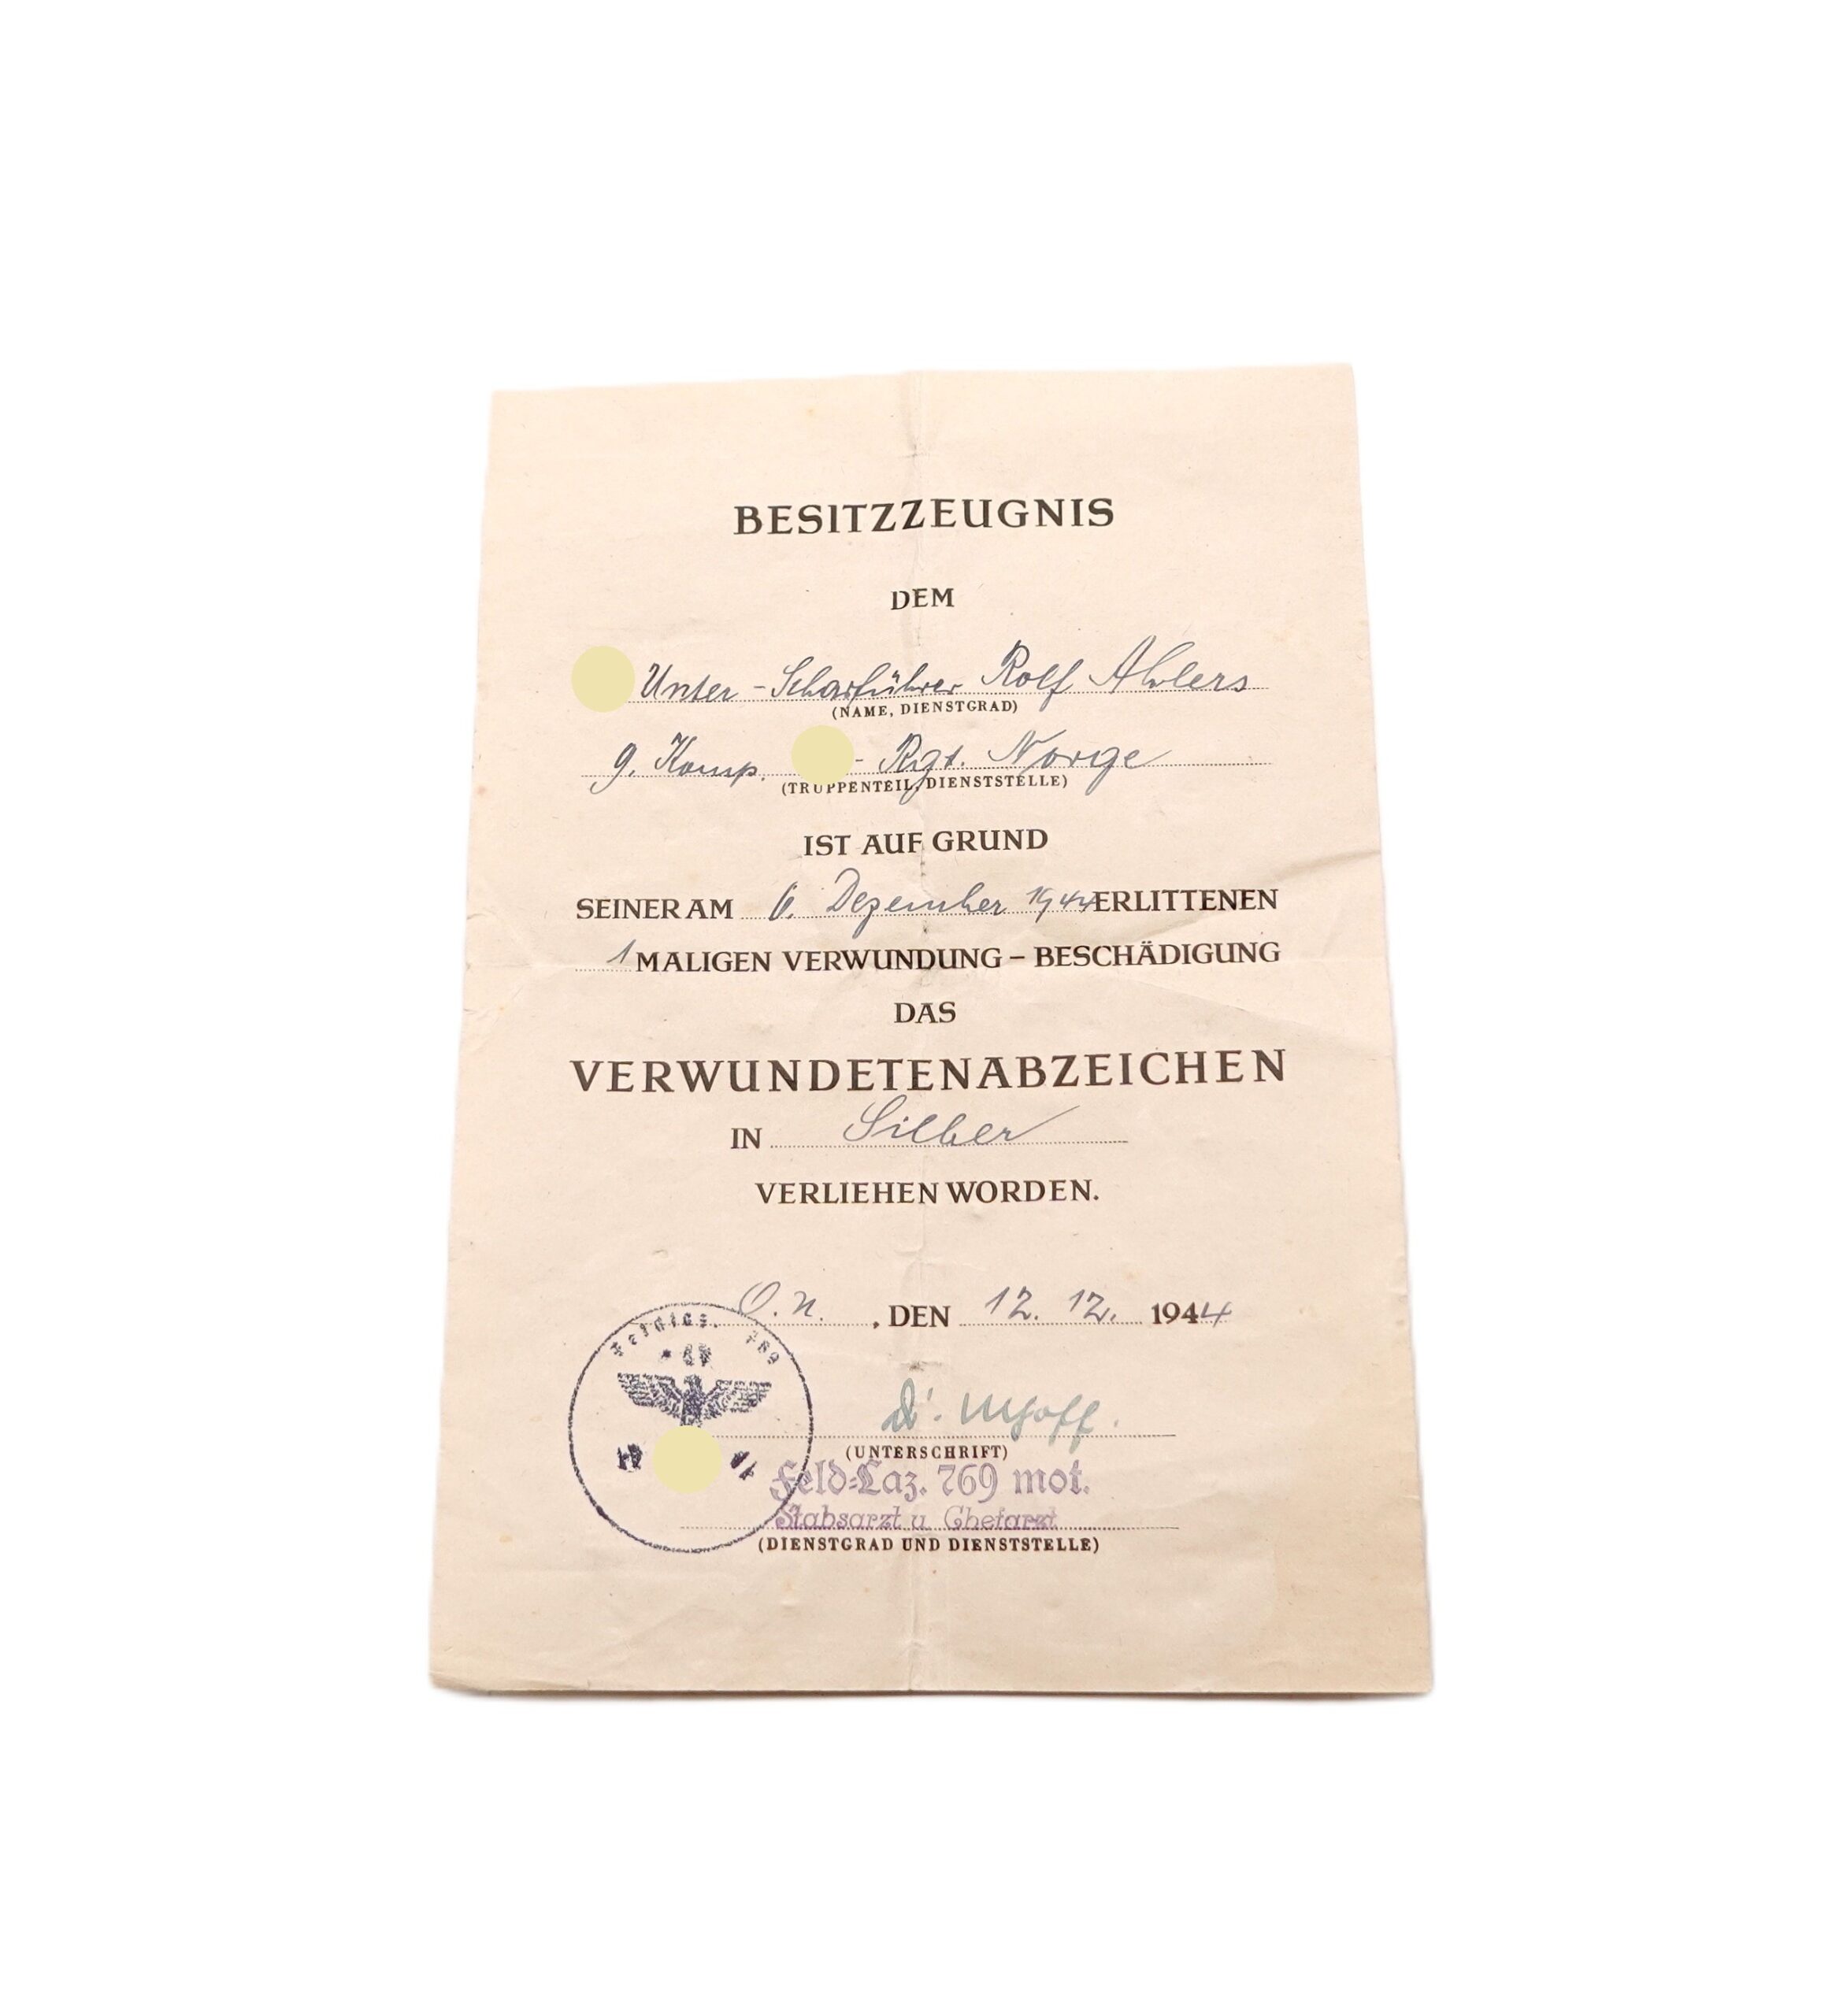 BESITZZEUGNIS
DEM
Unter-Scharführer Rolf Ahlers
(NAME, DIENSTGRAD)
9. Komp. - Rgt. Norge
(TRUPPENTEIL, DIENSTSTELLE)
IST AUF GRUND
SEINER AM 6. Dezember 1944 ERLITTENEN
1 MALIGEN VERWUNDUNG – BESCHÄDIGUNG
DAS
VERWUNDETENABZEICHEN
IN Silber
VERLIEHEN WORDEN.
O.U. , DEN 12. 12. 1944
769
Dr.
(UNTERSCHRIFT)
Feld-Laz. 769 mot.
Stabsarzt u. Chefarzt
(DIENSTGRAD UND DIENSTSTELLE)